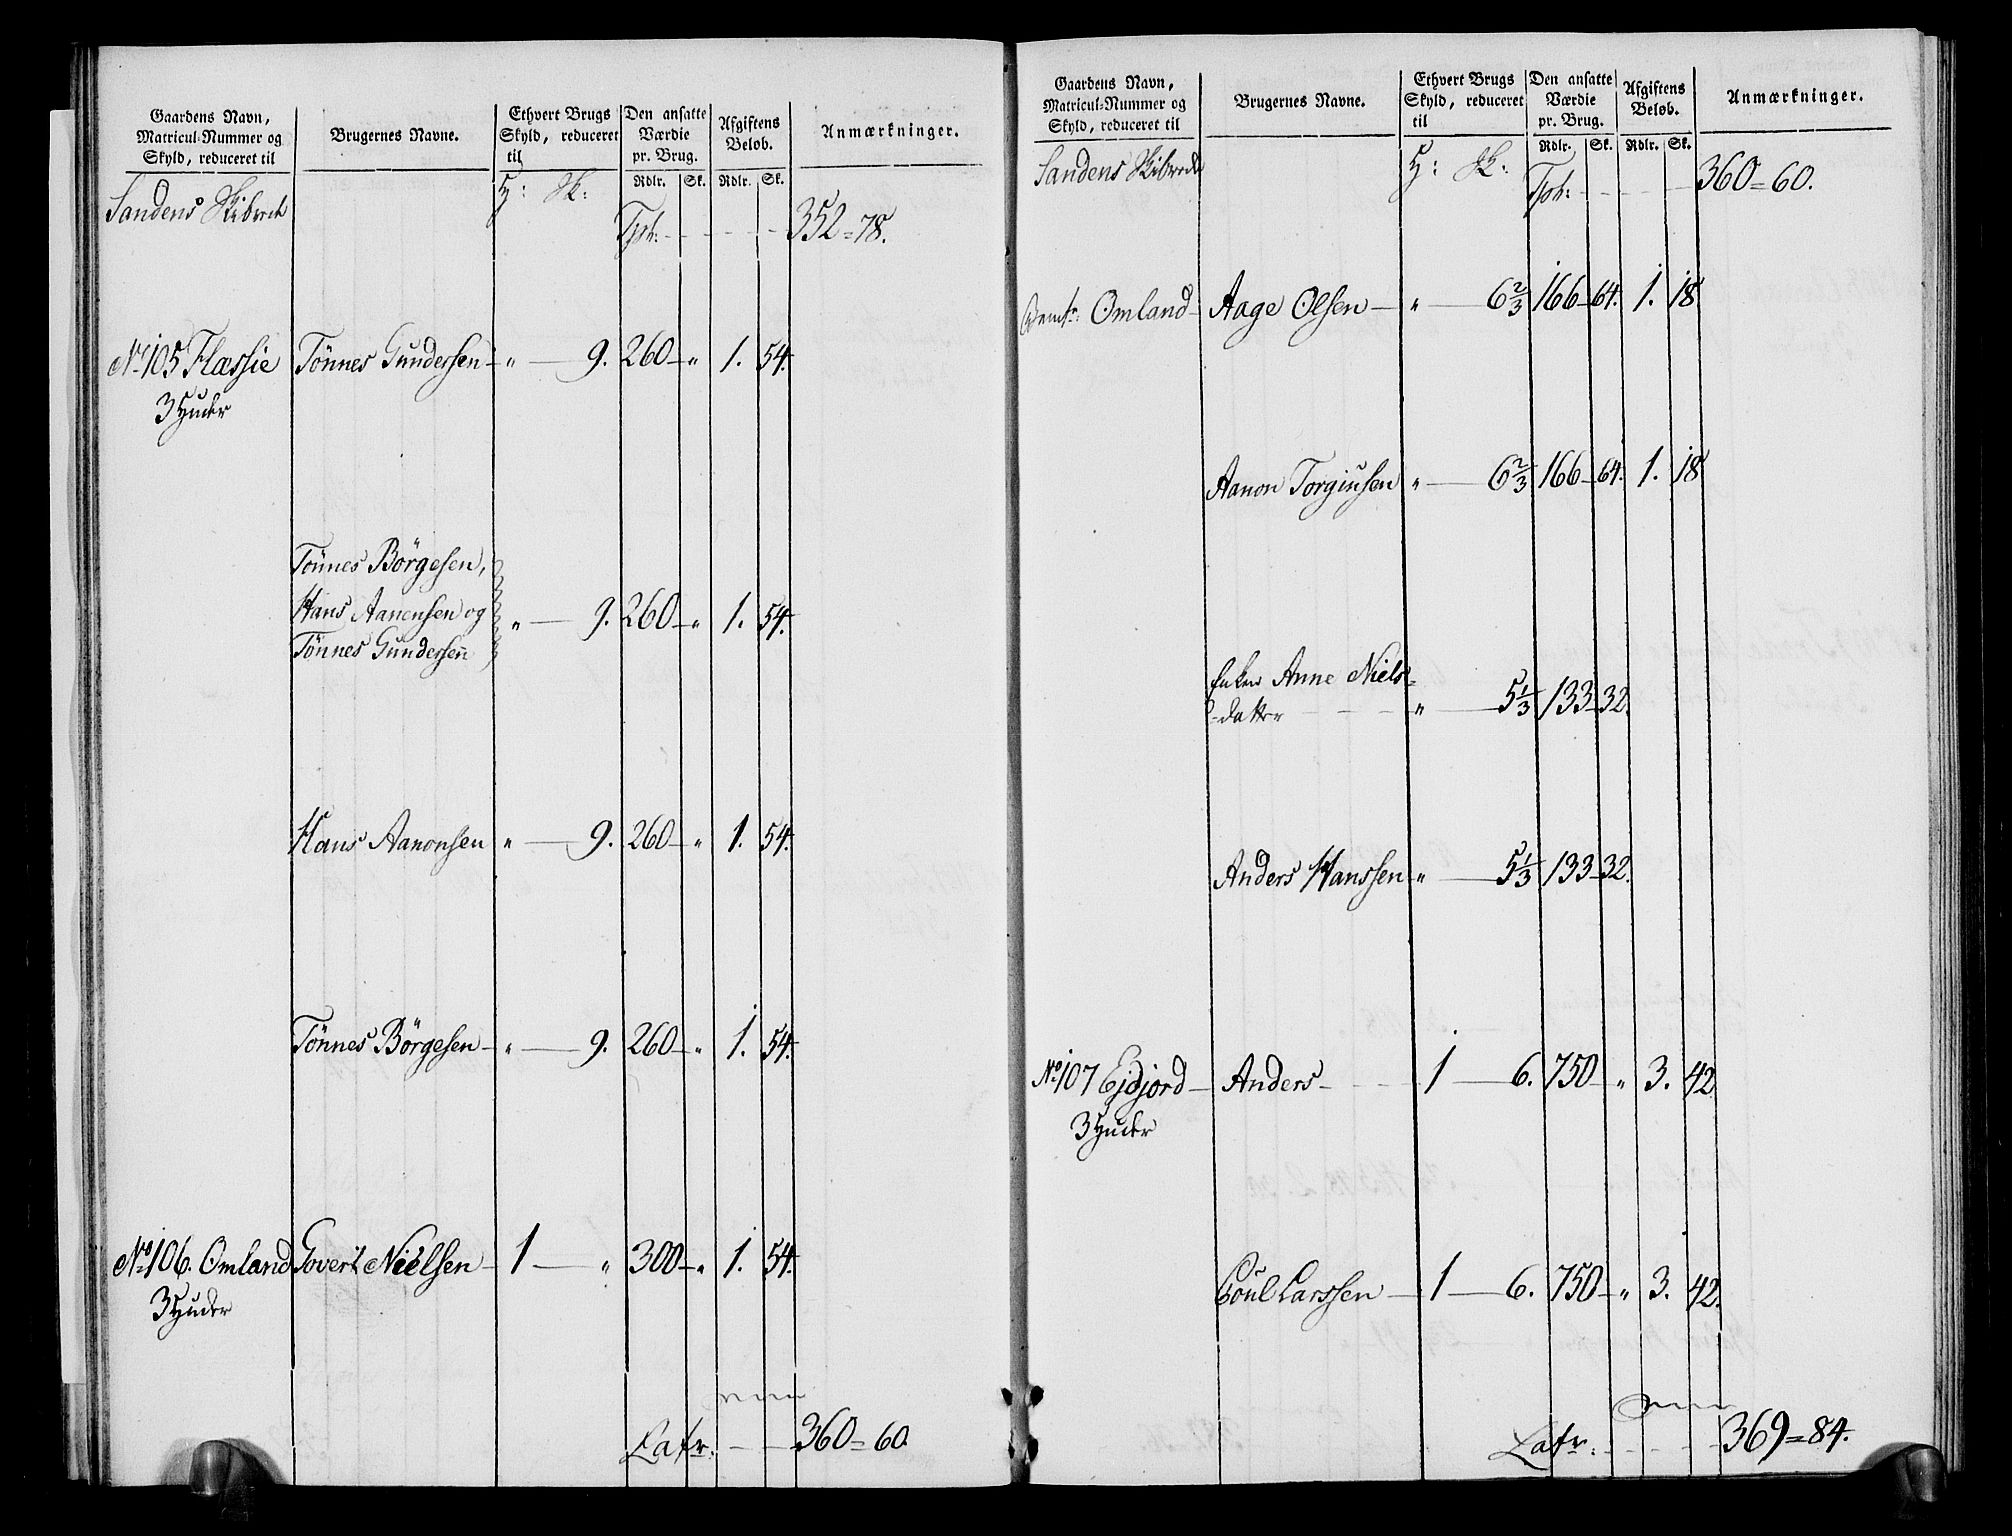 Gaardens Navn,
Matricul-Nummer og
Skyld, reduceret til
Brugernes Navne.
Ethvert Brugs
Skyld, reduceret
til
Den ansatte
Værdie
pr. Brug.
Rdlr. Sk.
Afgiftens
Beløb.
Rdlr. Sk.
Anmærkninger.
Sandens Skibrede H: Sk: Tpt: 352=78.
No 105 Flæssie Tönnes Gundersen " 9. 260 " 1. 54.
3 Huder
Tönnes Börgesen,
Hans Aanensen og " 9. 260 " 1. 54.
Tönnes Gundersen
Hans Aanonsen " 9. 260 " 1. 54.
Tönnes Börgesen " 9. 260 " 1. 54.
No 106. Omland Govert Nielsen 1 " 300 " 1. 54.
3 Huder
Latr: 360=60.
Gaardens Navn,
Matricul-Nummer og
Skyld, reduceret til
Brugernes Navne.
Ethvert Brugs
Skyld, reduceret
til
Den ansatte
Værdie
pr. Brug.
Rdlr. Sk.
Afgiftens
Beløb.
Rdlr. Sk.
Anmærkninger.
Sandens Skibrede H: Sk: Tpt: 360=60.
Omland Aage Olsen " 6 2/3 166 64. 1. 18
Aanon Torgiusen " 6 2/3 166 64. 1. 18
Enken Anne Niels=
-datter " 5 1/3 133 32.
Anders Hanssen " 5 1/3 133 32.
No 107 Ejdjord Anders 1 6. 750 " 3. 42
3 Huder
Poul Larssen 1 6. 750 " 3. 42.
Latr: 369=84.